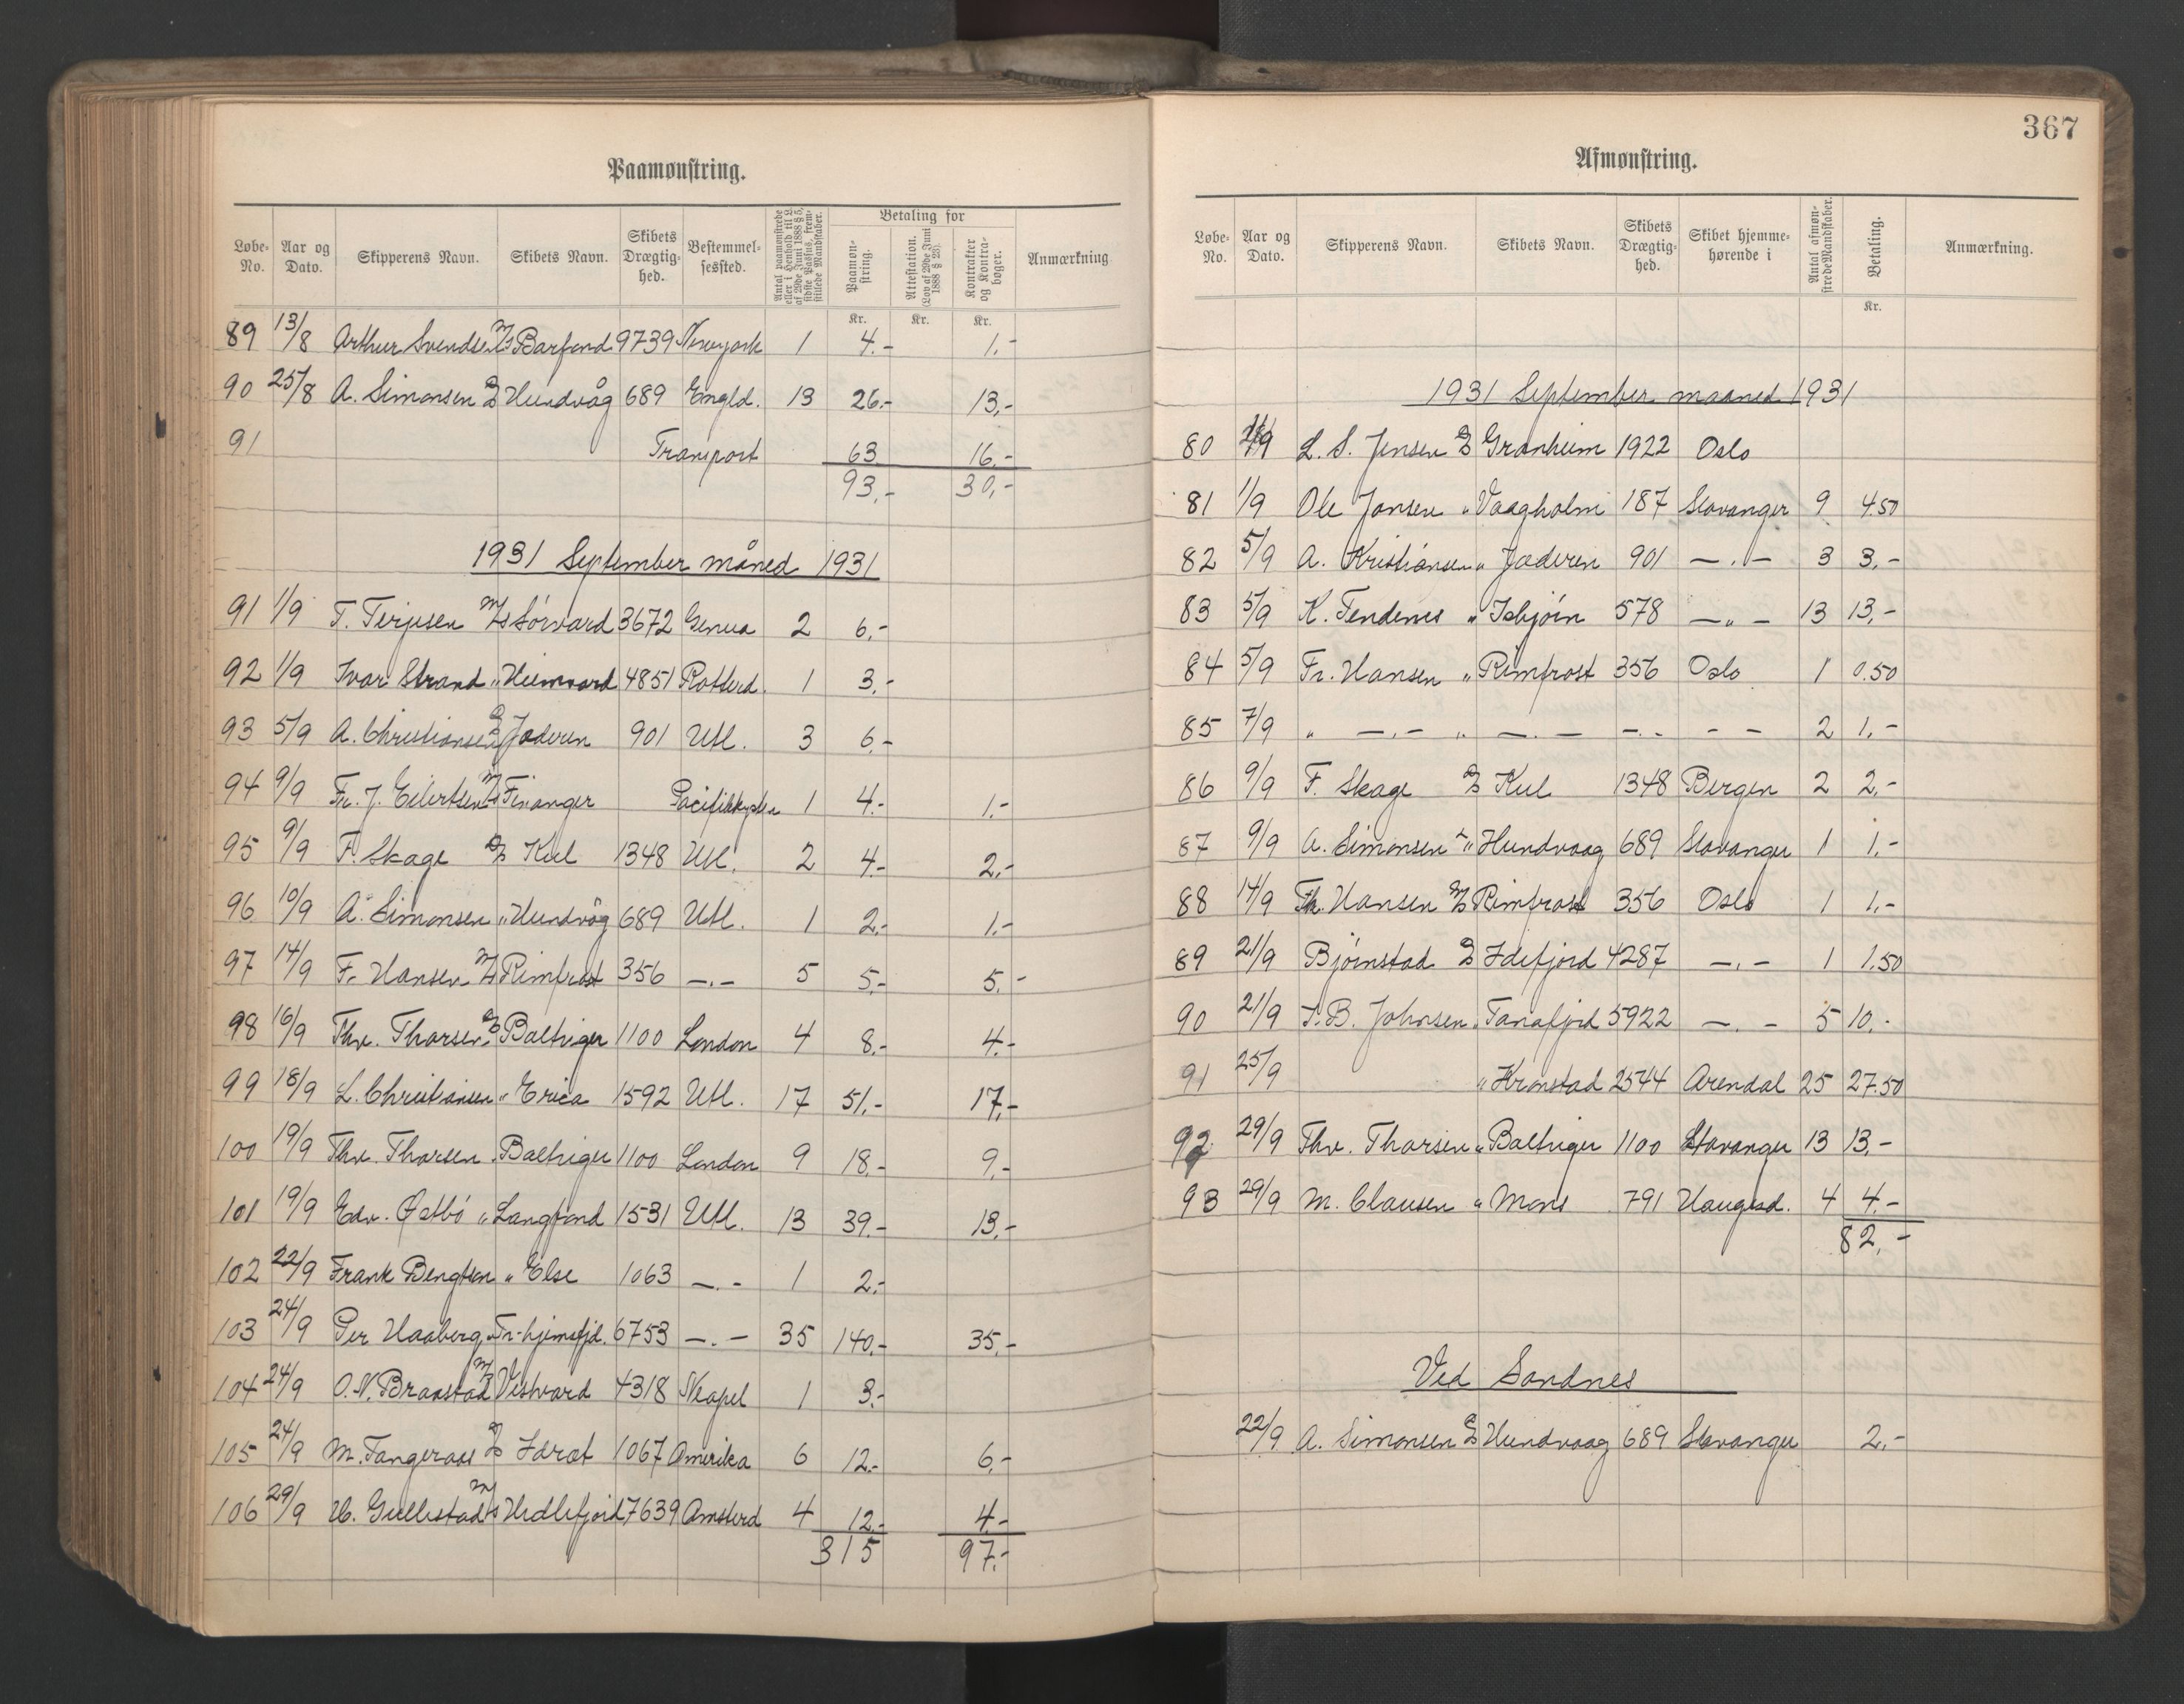 Paamønstring.
Løbe-No. Aar og Dato. Skipperens Navn. Skibets Navn. Skibets Drægtighed. Bestemmelsessted. Antal paamønstrede eller i Henhold til L. af 29de Juni 1888 § 5, sidste Passus, fremstillede Mandskaber. Betaling for Paamønstring. Attestation. (Lov af 29de Juni 1888 § 23). Kontrakter og Kontrabøger. Anmærkning
Kr. Kr. Kr.
89 13/8 Arthur Svendsen M/S Barfond 9739 Newyork 1 4.- 1.-
90 25/8 A. Simonsen D/S Hundvåg 689 Engld. 13 26.- 13,-
91 Transport 63 16.-
93,- 30,-
1931 September måned 1931
91 1/9 T. Terjesen M/S Sørvard 3672 Genua 2 6,-
92 1/9 Ivar Strand " Heimvard 4851 Rotterd. 1 3,-
93 5/9 A. Christiansen D/S Jæderen 901 Utl. 3 6,-
94 9/9 Fr. J. Eilertsen M/S Finanger Pacifikkysten 1 4.- 1.-
95 9/9 F. Skage D/S Kul 1348 Utl. 2 4.- 2.-
96 10/9 A. Simonsen " Hundvåg 689 Utl. 1 2.- 1.-
97 14/9 Fr. Hansen M/S Rimfrost 356 -.- 5 5.- 5.-
98 16/9 Thv. Thorsen D/S Baltiger 1100 London 4 8.- 4.-
99 18/9 L. Christiansen " Erica 1592 Utl. 17 51,- 17,-
100 19/9 Thv. Thorsen " Baltiger 1100 London 9 18.- 9.-
101 19/9 Edv. Østbö " Langfond 1531 Utl. 13 39.- 13.-
102 22/9 Frank Bengtsen " Else 1063 -.- 1 2.-
103 24/9 Per Haaberg " Tr-hjemsfjd. 6753 -.- 35 140.- 35,-
104 24/9 O. N. Braastad M/S Vestvard 4318 Neapel 1 3.-
105 24/9 M. Tangeraas D/S Idræt 1067 Amerika 6 12.- 6,-
106 29/9 H. Gullestad M/S Hidlefjord 7639 Amsterd 4 12.- 4.-
315 97.-
367
Afmønstring.
Løbe-No. Aar og Dato. Skipperens Navn. Skibets Navn. Skibets Drægtighed. Skibet hjemmehørende i Antal afmønstrede Mandskaber. Betaling. Anmærkning.
Kr.
1931 September maaned 1931
80 L. S. Jensen D/S Granheim 1922 Oslo
81 1/9 Ole Jansen " Vaagholm 187 Stavanger 9 4.50
82 5/9 A. Kristiansen " Jæderen 901 -.- 3 3.-
83 5/9 K. Tendenes " Isbjörn 578 -"- 13 13,-
84 5/9 Fr. Hansen " Rimfrost 356 Oslo 1 0.50
85 7/9 " -.- " -.- -.- - - 2 1.-
86 9/9 F. Skage D/S Kul 1348 Bergen 2 2,-
87 9/9 A. Simonsen " Hundvaag 689 Stavanger 1 1.-
88 14/9 Fr. Hansen M/S Rimfrost 356 Oslo 1 1.-
89 21/9 Bjørnstad D/S Idefjord 4287 -.- 1 1.50
90 21/9 J. B. Johnsen " Tanafjord 5922 -.- 5 10.-
91 25/9 " Kronstad 2544 Arendal 25 27.50
92 29/9 Thv. Thorsen " Baltiger 1100 Stavanger 13 13.-
93 29/9 M. Clausen " Mons 791 Haugesd. 4 4.-
82.-
Ved Sandnes
22/9 A. Simonsen D/S Hundvaag 689 Stavanger 2.-